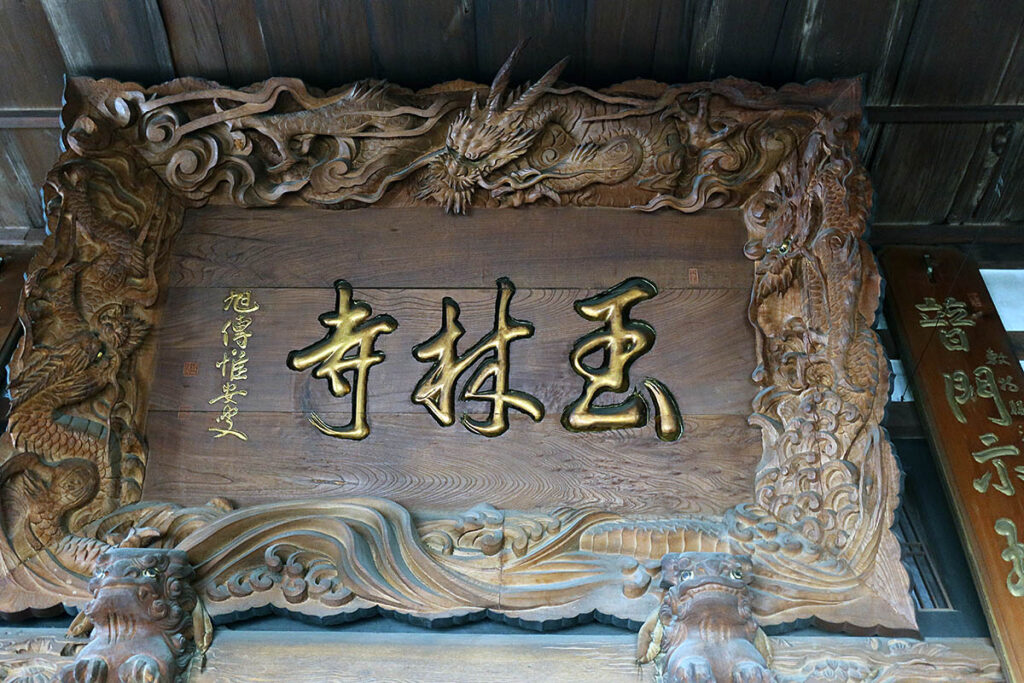 玉林寺
旭傳惟安叟
普門示